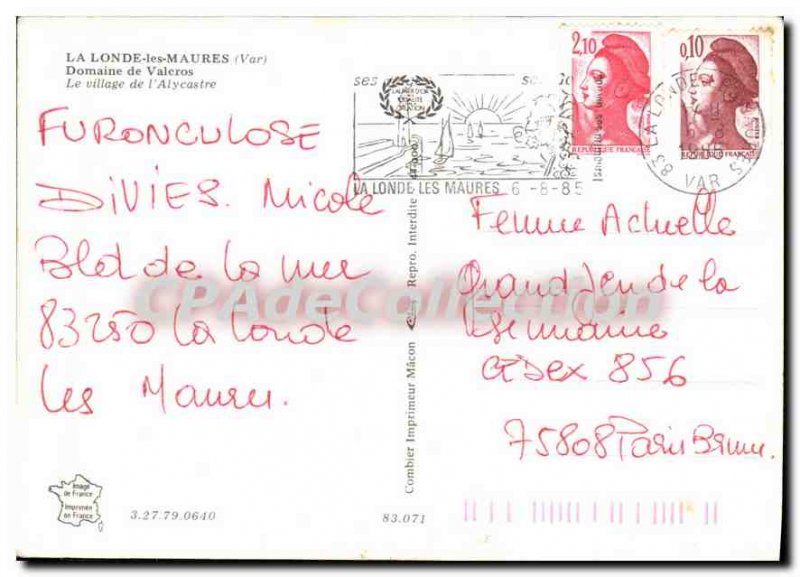 LA LONDE-les-MAURES (Var)
Domaine de Valcros
Le village de l'Alycastre
FURONCULOSE
DIVIES. Nicole
Bld de la mer
83250 La Londe
Les Maures.
ses
LA LONDE LES MAURES 6 -8-85
2,10
RÉPUBLIQUE FRANÇAISE
0,10
RÉPUBLIQUE FRANÇAISE
83 LA LONDE
VAR
Femme Actuelle
Grand Jeu de la
Semaine
CEDEX 856
75808 Paris Brune.
CPAdeCollection
Combier Imprimeur Mâcon
Repro. Interdite
Image
de France
Imprimée
en France
3.27.79.0640
83.071